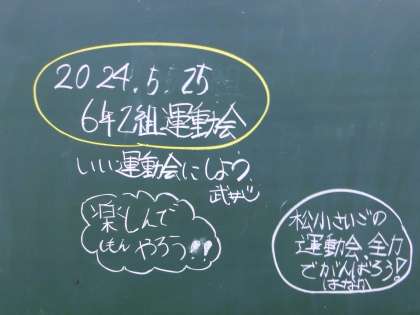 2024.5.25
6年2組運動会
いい運動会にしよう
武井
楽しんで
しもん やろう!!
松小さいごの
運動会、全力
でがんばろう!
はなか